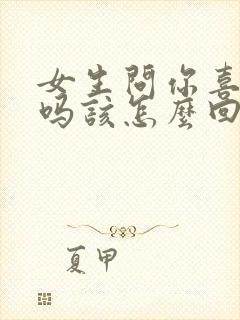 女生問你喜
嗎該怎麼回
夏甲